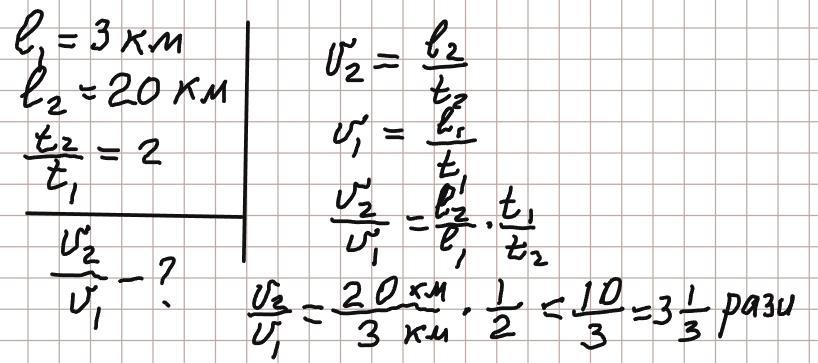 l₁ = 3 км
l₂ = 20 км
t₂/t₁ = 2
v₂/v₁ - ?
v₂ = l₂/t₂
v₁ = l₁/t₁
v₂/v₁ = l₂/l₁ · t₁/t₂
v₂/v₁ = 20 км/3 км · 1/2 = 10/3 = 3 1/3 рази